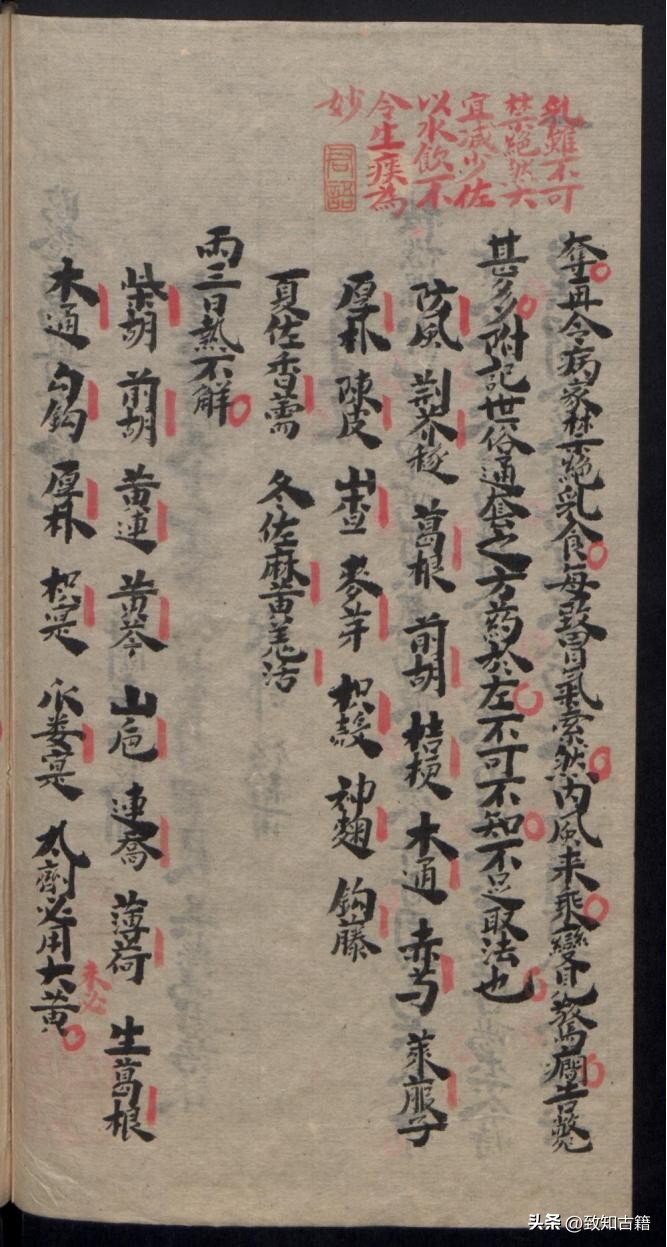 乳雖不可
禁絕然大
宜減少佐
以水飲不
令生痰為
妙
君語
奪再令病家禁絕乳食每致胃氣索然內風来乘變見驚癇告斃
甚多附記世俗通套之方藥於左不可不知不足取法也
防風 荆芥 葛根 前胡 桔梗 木通 赤芍 萊服子
厚朴 陳皮 山查 麥芽 枳殼 神麯 鈎藤
夏佐香薷 冬佐麻黃羗活
兩三日熱不解
柴胡 前胡 黃連 黃芩 山卮 連喬 薄荷 生葛根
木通 勾鈎 厚朴 枳寔 瓜蔞寔 丸劑必用大黃
未必
头条 @致知古籍